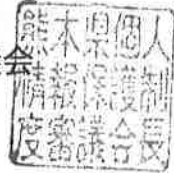 会
熊本県個人
情報保護制
度審議会長